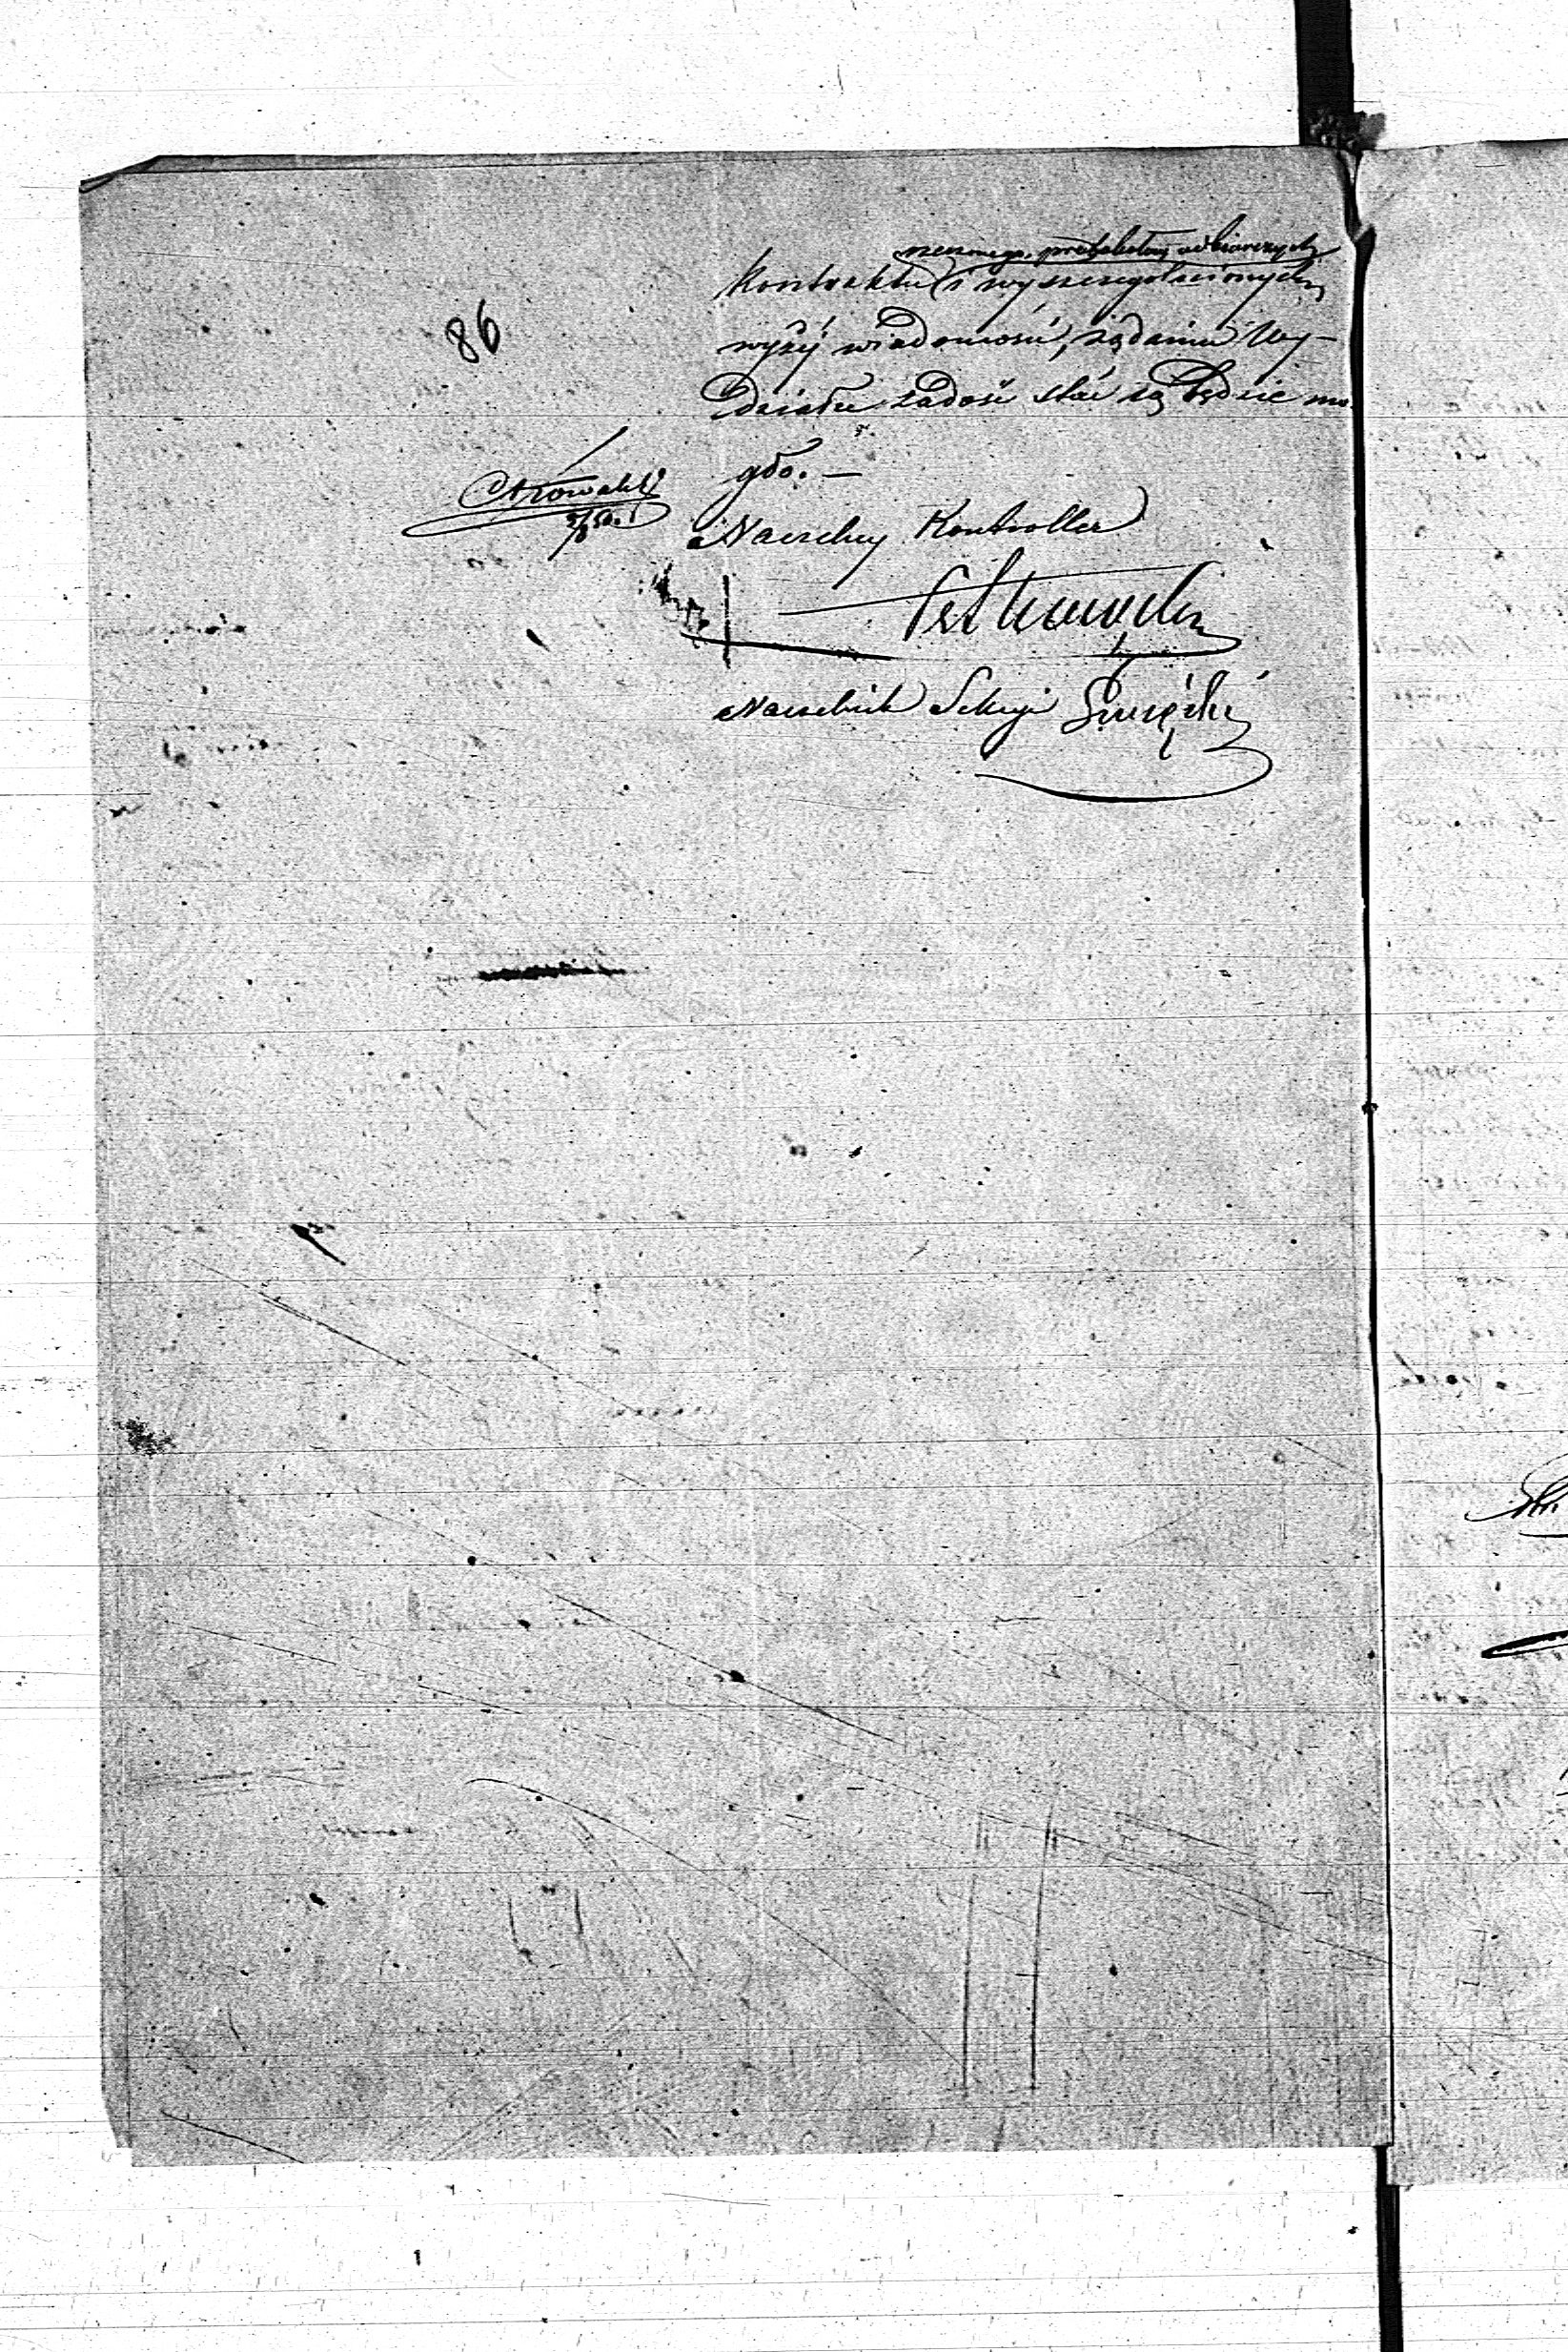 86
rzeczonego, protokołów odbiorczych
kontraktu i wyszczególnionych
wyżéj wiadomości, żądaniu Wy-
działu zadość stać się będzie mo-
gło. —
Naczelny Kontroller
Naczelnik Sekcyi